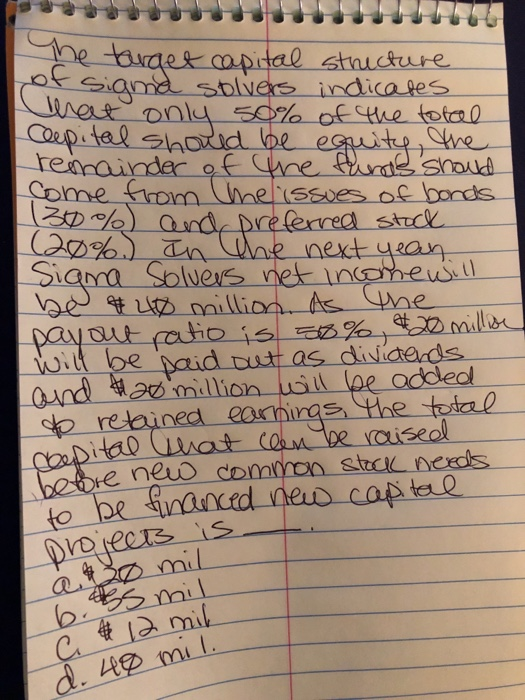 The target capital structure
of sigma solvers indicates
that only 50% of the total
capital should be equity, the
remainder of the funds should
come from the issues of bonds
(30%) and preferred stock
(20%.) In the next year,
Sigma Solvers net income will
be $40 million. As the
payout ratio is 50%, $20 million
will be paid out as dividends
and $20 million will be added
to retained earnings. The total
capital that can be raised
before new common stock needs
to be financed new capital
projects is ___.
a. $20 mil
b. $35 mil
c. $12 mil
d. 40 mil.